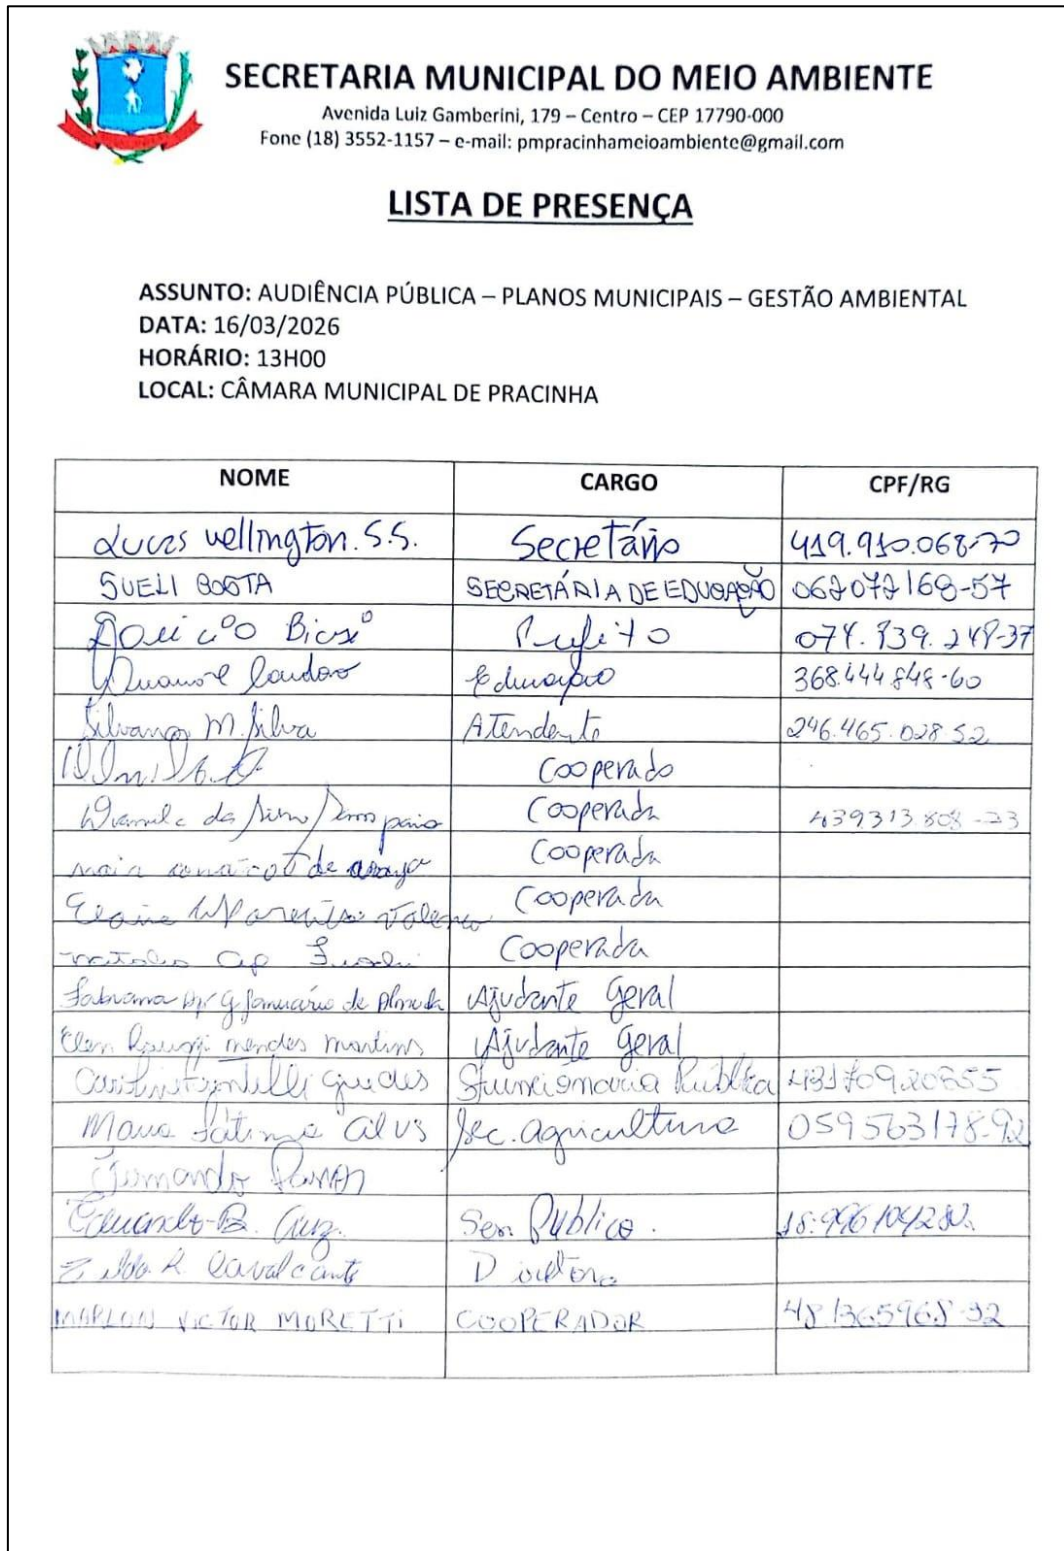 SECRETARIA MUNICIPAL DO MEIO AMBIENTE
Avenida Luiz Gamberini, 179 – Centro – CEP 17790-000
Fone (18) 3552-1157 – e-mail: pmpracinhameioambiente@gmail.com
LISTA DE PRESENÇA
ASSUNTO: AUDIÊNCIA PÚBLICA – PLANOS MUNICIPAIS – GESTÃO AMBIENTAL
DATA: 16/03/2026
HORÁRIO: 13H00
LOCAL: CÂMARA MUNICIPAL DE PRACINHA
NOME CARGO CPF/RG
Lucas Wellington. S.S. Secretário 419.910.068-70
SUELI COSTA SECRETÁRIA DE EDUCAÇÃO 062072168-57
Prefeito
Educação 368.444.848-60
Silvana M. Silva Atendente 246.465.028.52
Cooperado
da Cooperada 439313.808-23
de Cooperada
Elaine Cooperada
Ap Cooperada
Fabiana Ap. G. Januário de Almeida Ajudante Geral
Mendes Martins Ajudante Geral
Guedes Funcionaria Publica
Maria Fátima Alves Sec. agricultura 059563178-92
Eduardo B. Ser. Publico.
R. Cavalcante Diretora
MARLON VICTOR MORETTI COOPERADOR